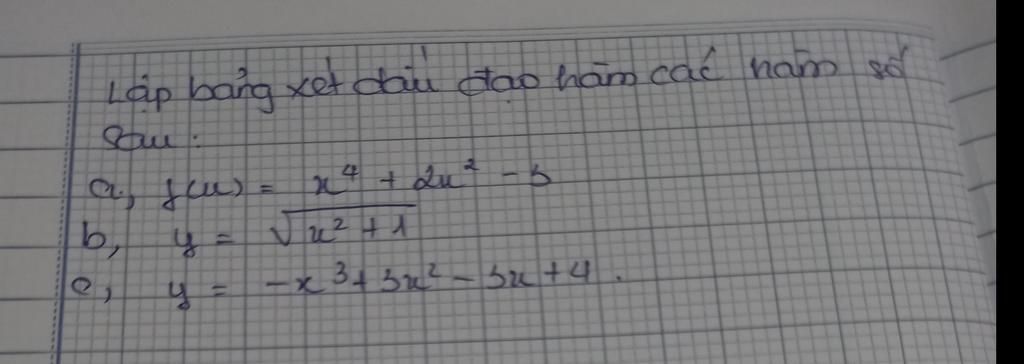 Lập bảng xét dấu đạo hàm các hàm số
sau:
a, f(x) = x⁴ + 2x² - 3
b, y = √(x² + 1)
c, y = -x³ + 3x² - 3x + 4.